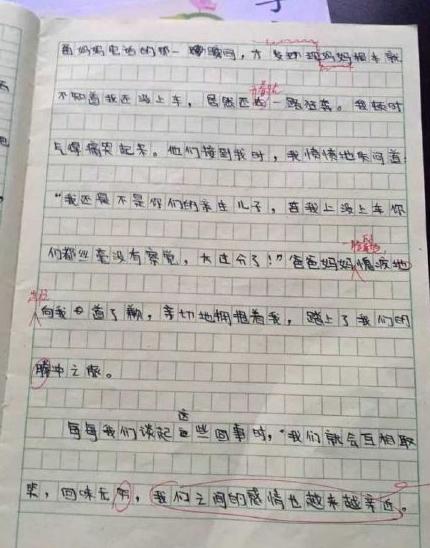 爸妈妈电话的那一瞬间，才发现妈妈根本就
不知道我还没上车，居然还一路狂奔。我顿时
气得痛哭起来。他们接到我时，我愤愤地质问道：
“我还是不是你们的亲生儿子，连我上没上车你
们都丝毫没有察觉，太过分了！”爸爸妈妈愧疚地
向我道了歉，亲切地拥抱着我，踏上了我们的
腾冲之旅。
每每我们谈起这些回事时，“我们就会互相取
笑，回味无穷，我们之间的感情也越来越亲近。